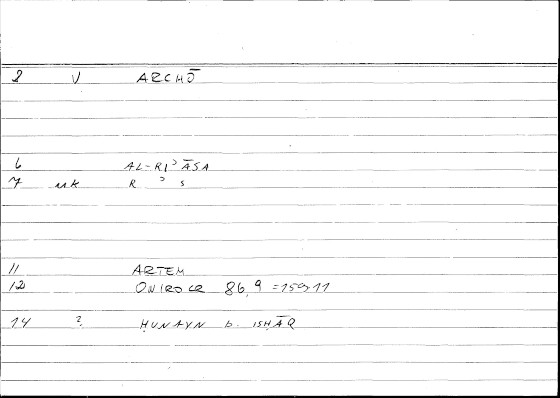 8 V ARCHŌ
6 AL-RIʾĀSA
7 mk R ʾ S
11 ARTEM
12 ONIROCR 86,9 = 159,11
14 ? ḤUNAYN b. ISḤĀQ